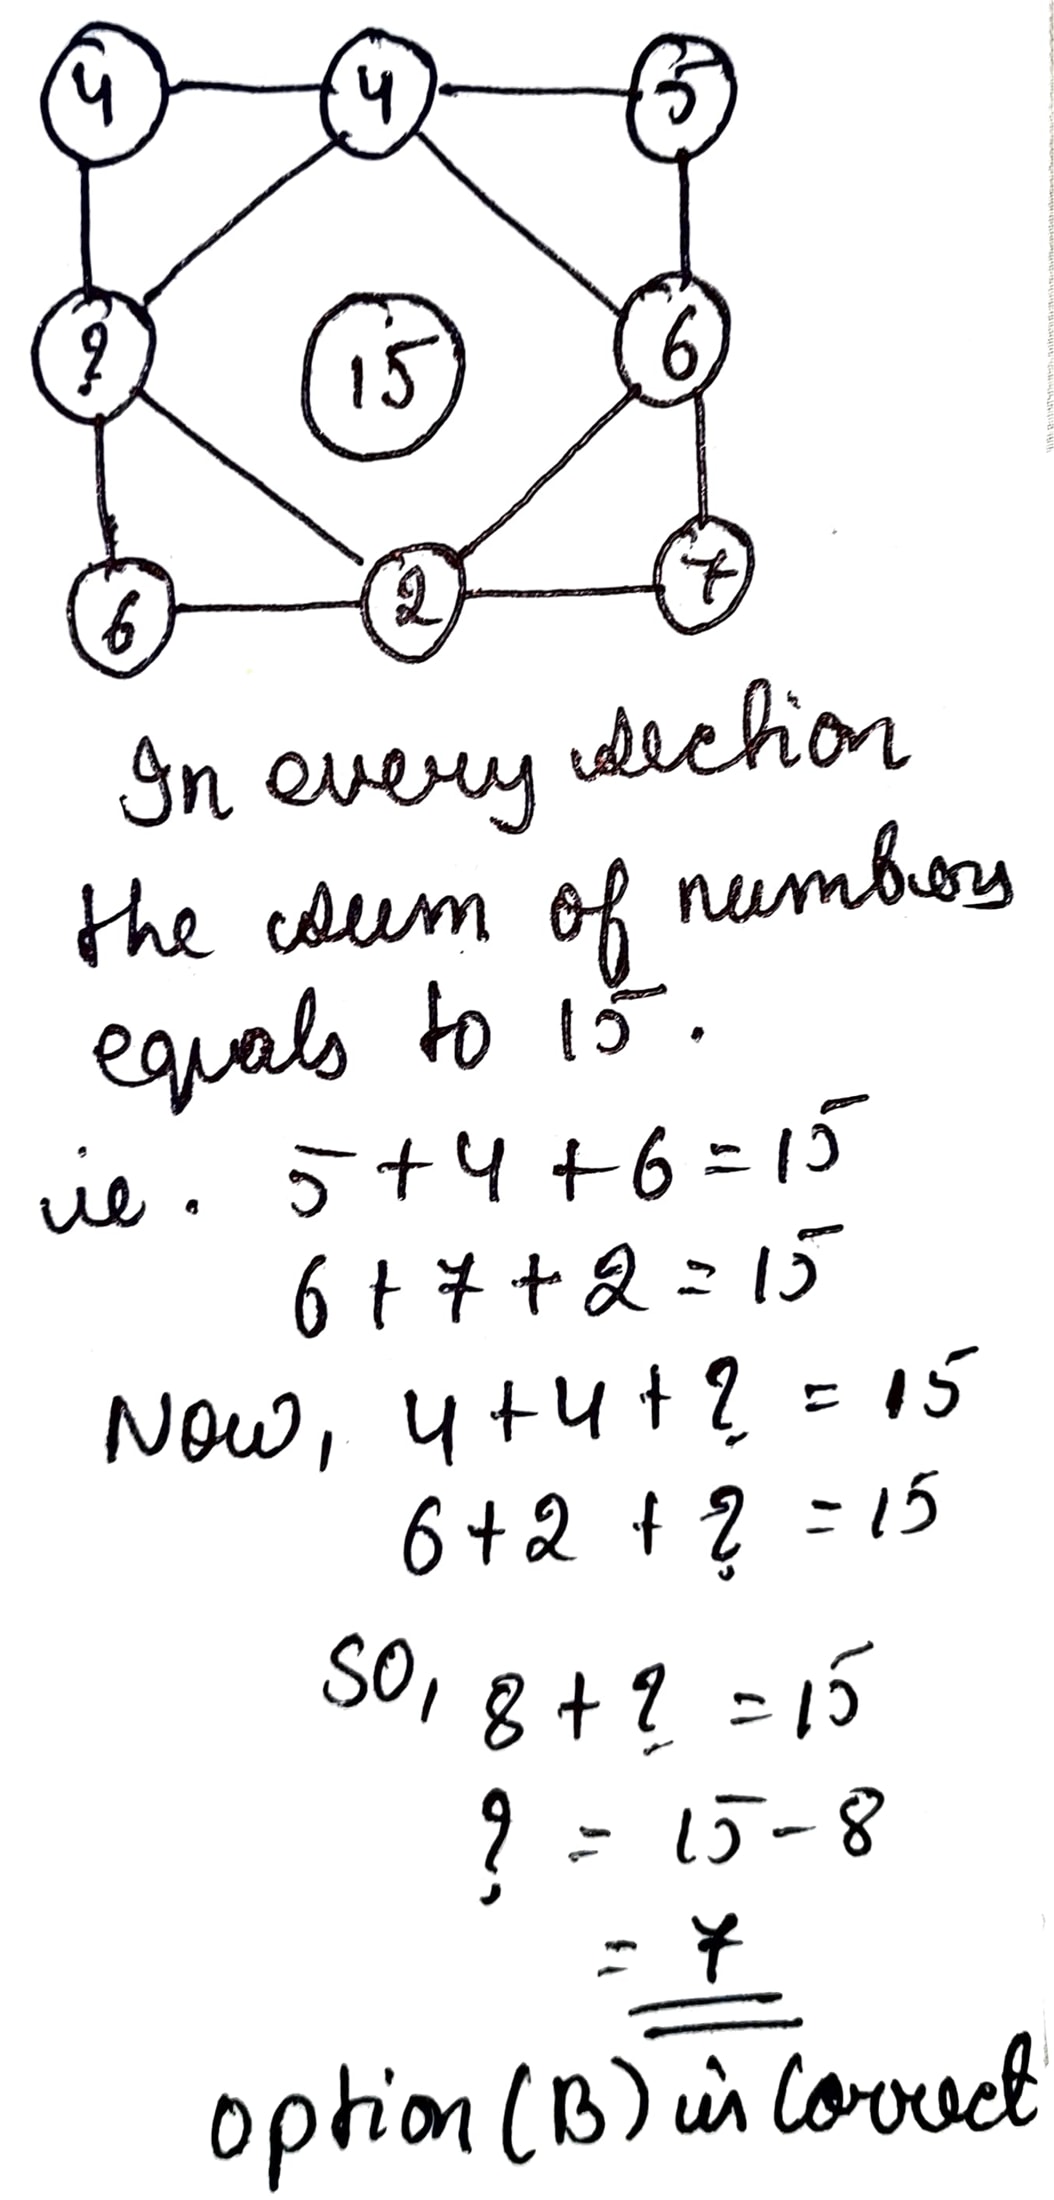 4 4 5
? 15 6
6 2 7
In every section
the sum of numbers
equals to 15.
ie. 5 + 4 + 6 = 15
6 + 7 + 2 = 15
Now, 4 + 4 + ? = 15
6 + 2 + ? = 15
SO, 8 + ? = 15
? = 15 - 8
= 7
option (B) is Correct